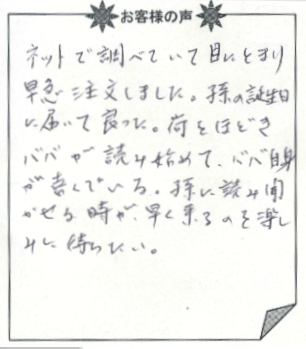 お客様の声
ネットで調べていて目にとまり
早急注文しました。孫の誕生日
に届いて良った。荷をほどき
ババが読み始めて、ババ自身
が喜んでいる。孫に読み聞
かせる時が、早く来るのを楽し
みに待ちたい。